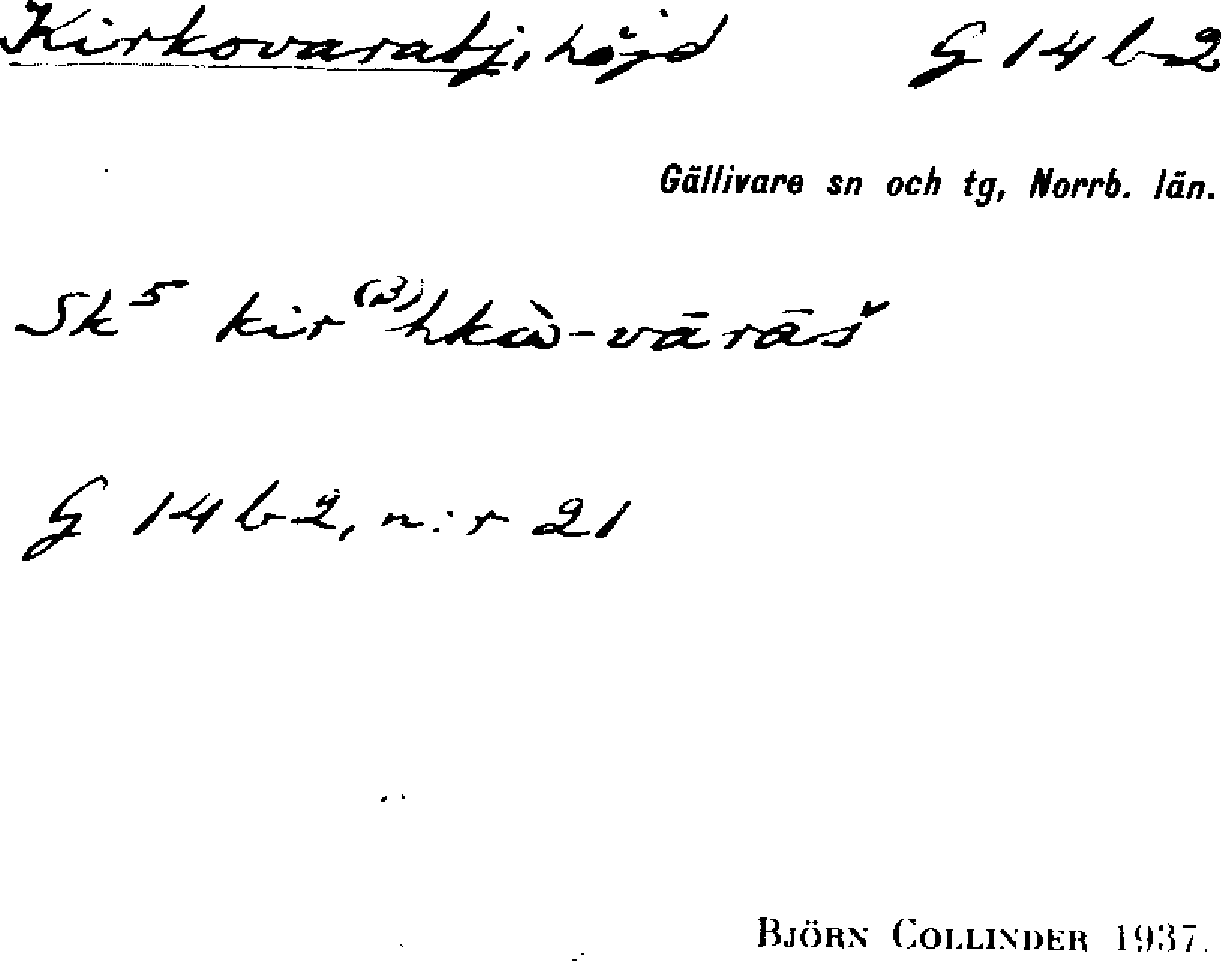 Kirkovaratj, höjd G 14 b 2
Gällivare sn och tg, Norrb. län.
Sk⁵ kir⁽³⁾hkà̀-vārāš
G 14 b 2, n:r 21
BJÖRN COLLINDER 1937.